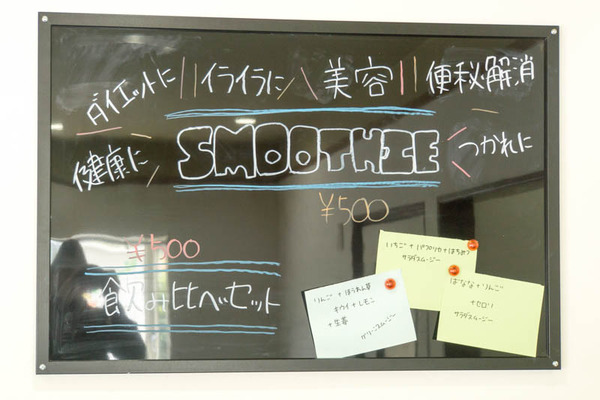 ダイエットに イライラに 美容 便秘解消
健康に SMOOTHIE つかれに
¥500
¥500
飲み比べセット
いちご + パプリカ + はちみつ
サラダスムージー
ばなな + りんご
+ セロリ
サラダスムージー
りんご + ほうれん草
キウイ + レモン
+ 生姜
グリーンスムージー